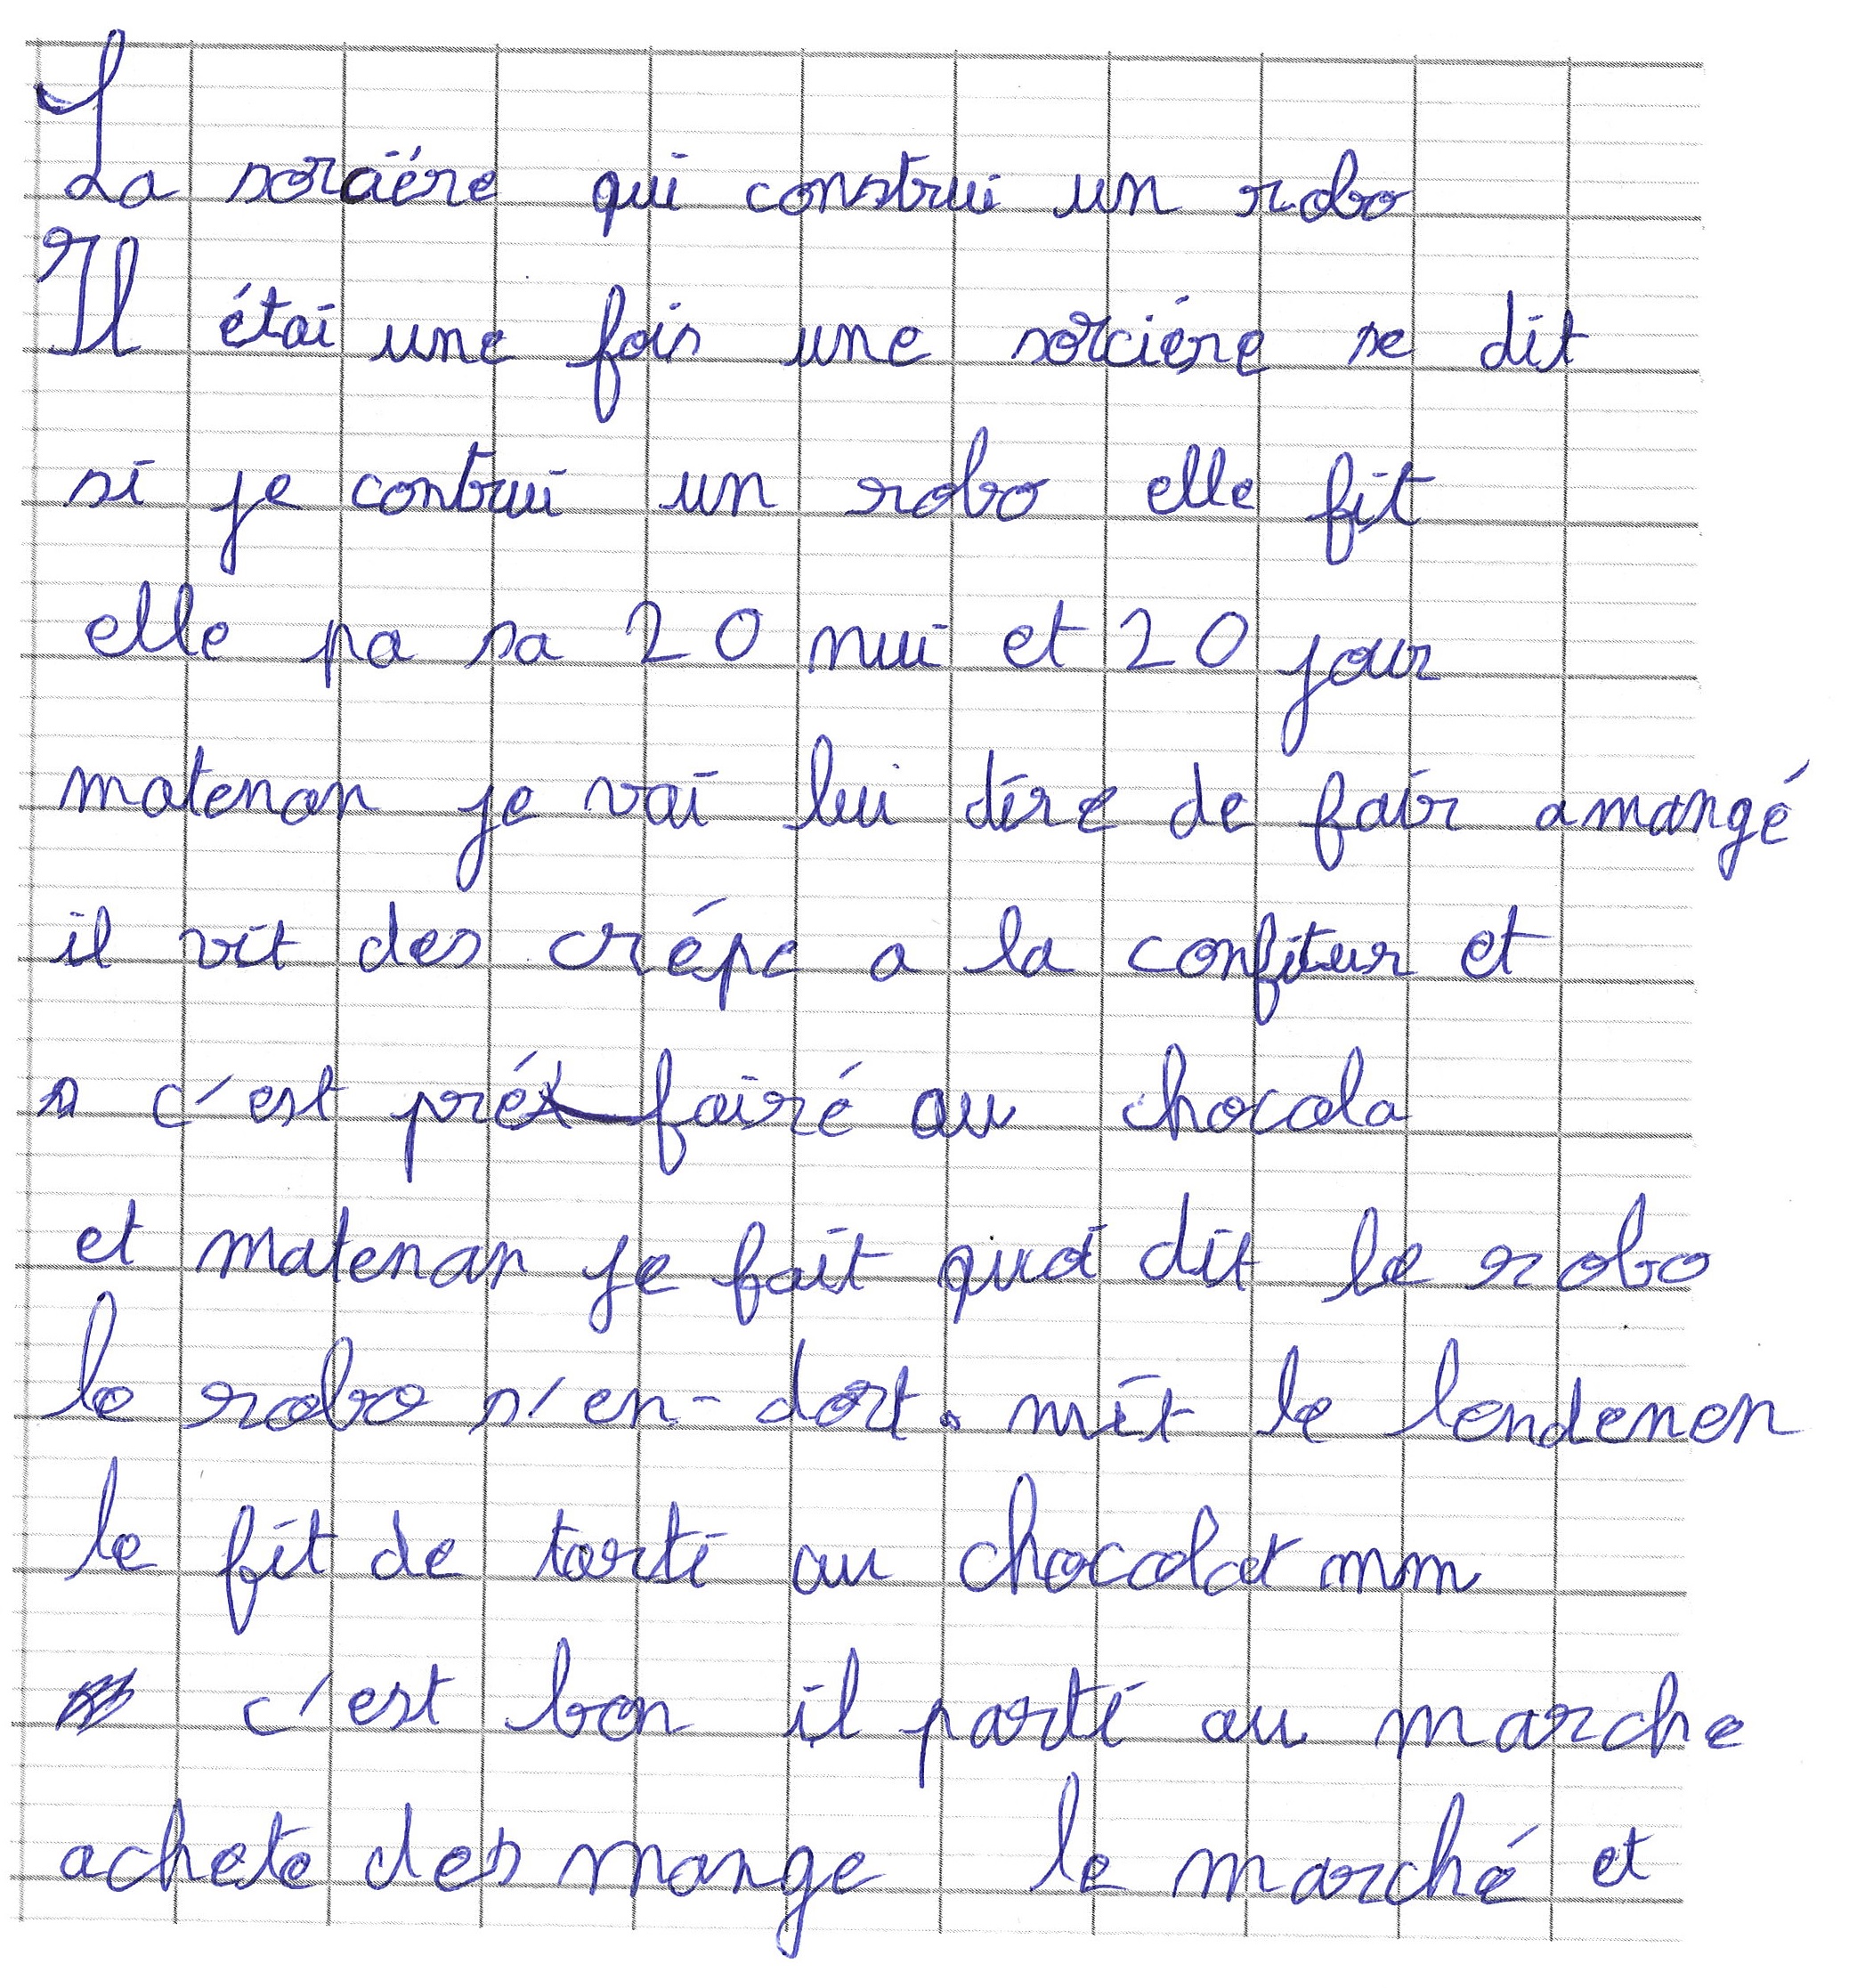 La sorciére qui construi un robo
Il étai une fois une sorciére se dit
si je contrui un robo elle fit
elle pa sa 20 nui et 20 jour
matenan je vai lui dire de fair amangé
il vit des crépe a la confitur et
c'est pré fairé au chocola
et matenan je fait quoi dit le robo
le robo s'en-dort. mit le lendenen
le fit de tarti au chocolat mm
c'est bon il parti au marche
achete des mange le marché et